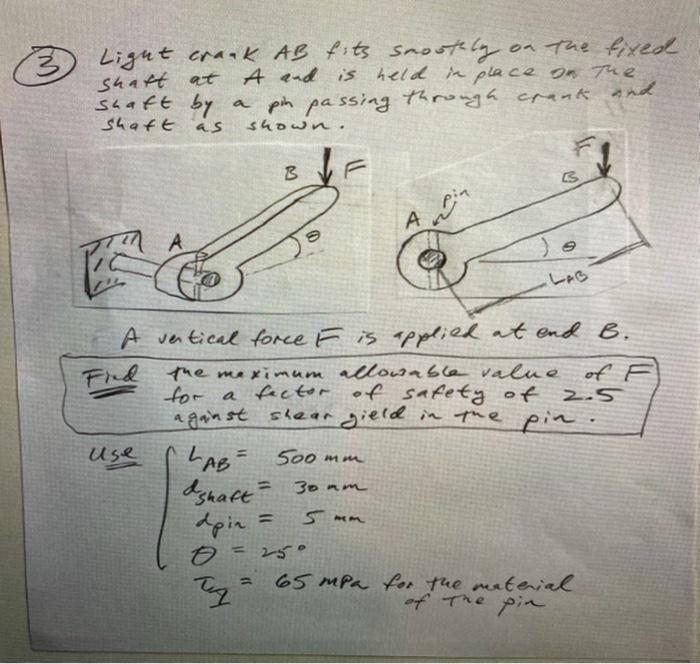 3
Light crank AB fits smoothly on the fixed
shaft at A and is held in place on the
shaft by a pin passing through crank and
shaft as shown.
B F
A θ
F
B
pin
A
θ
LAB
A vertical force F is applied at end B.
Find the maximum allowable value of F
for a factor of safety of 2.5
against shear yield in the pin.
Use LAB = 500 mm
dshaft = 30 mm
dpin = 5 mm
θ = 25°
τy = 65 MPa for the material
of the pin